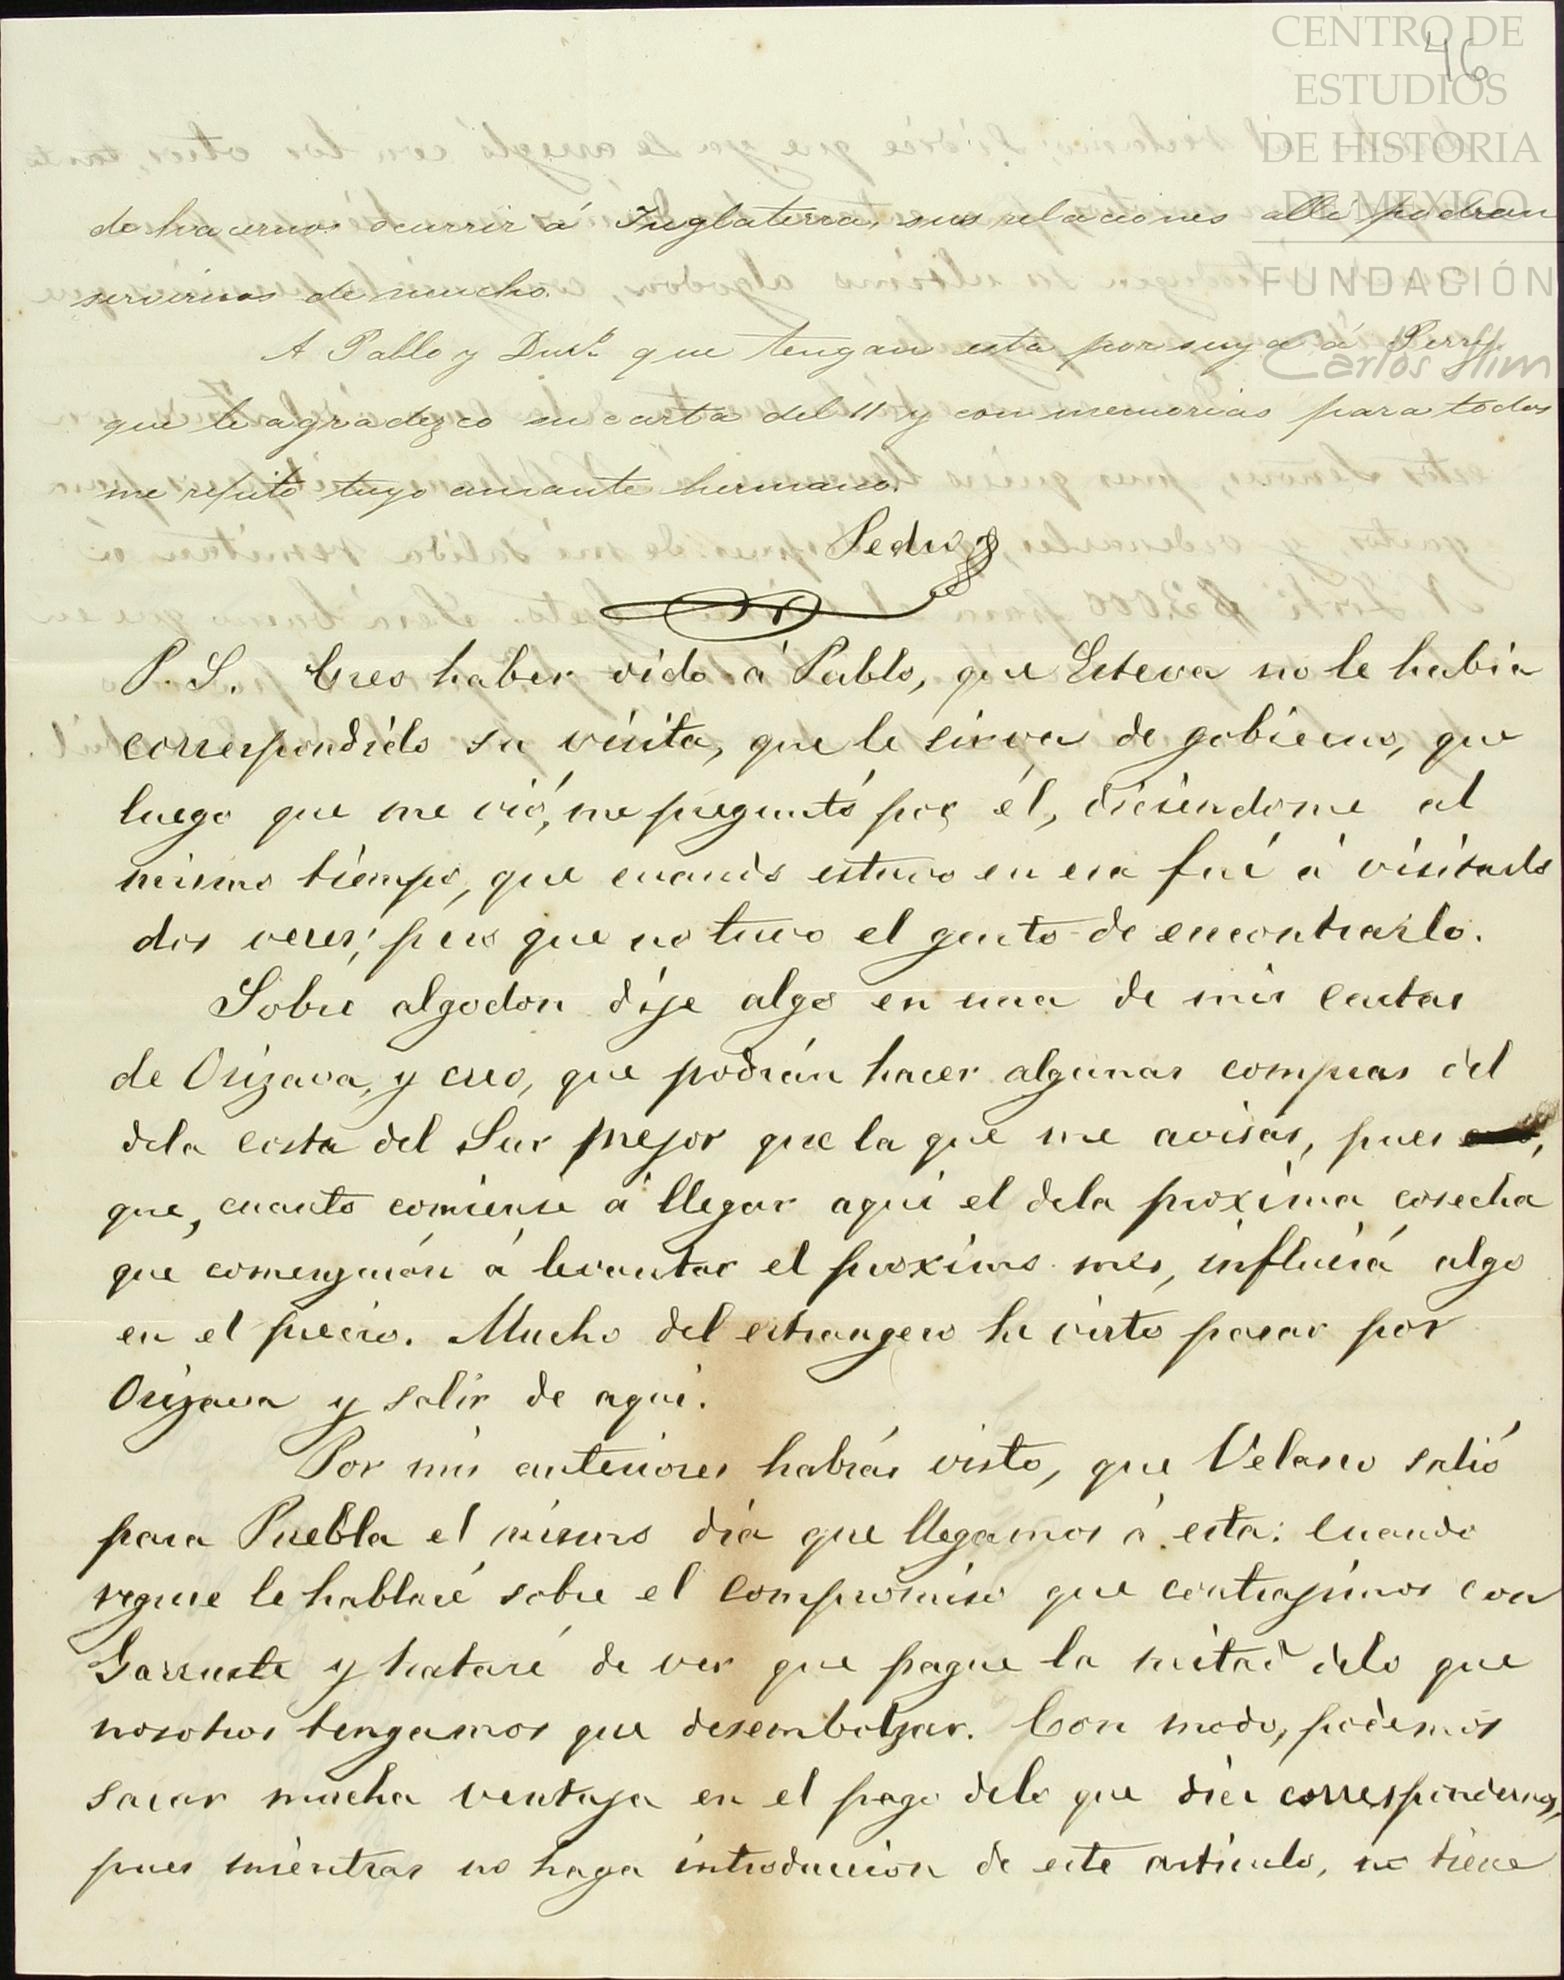 CENTRO DE
ESTUDIOS
DE HISTORIA
DE MEXICO
FUNDACIÓN
Carlos Slim
46
de hacernos ocurrir á Inglaterra, sus relaciones allí podran
servirnos de mucho.
A Pablo y que tengan esta por suya á Perry
que le agradezco su carta del 11 y con memorias para todos
me repito tuyo amante hermano.
Pedro
P. S. Creo haber oido á Pablo, que Esteva no le habia
correspondido su visita, que le sirva de gobierno, que
luego que me vió, me preguntó por él, diciendome al
mismo tiempo, que cuando estuvo en esa fué á visitarlo
dos veces; pero que no tuvo el gusto de encontrarlo.
Sobre algodon dije algo en una de mis cartas
de Orizava, y creo, que podrán hacer algunas compras del
dela costa del Sur mejor que la que me avisas, pues
que, cuanto comiense á llegar aqui el dela proxima cosecha
que comenzarán á levantar el proximo mes, influirá algo
en el precio. Mucho del estrangero he visto pasar por
Orizava y salir de aqui.
Por mis anteriores habrás visto, que Velasco salió
para Puebla el mismo dia que llegamos á esta: cuando
regrese le hablaré sobre el compromiso que contrajimos con
Garruste y trataré de ver que pague la mitad delo que
nosotros tengamos que desembolzar. Con modo, podemos
sacar mucha ventaja en el pago delo que dice correspondernos,
pues mientras no haga introduccion de este articulo, no tiene